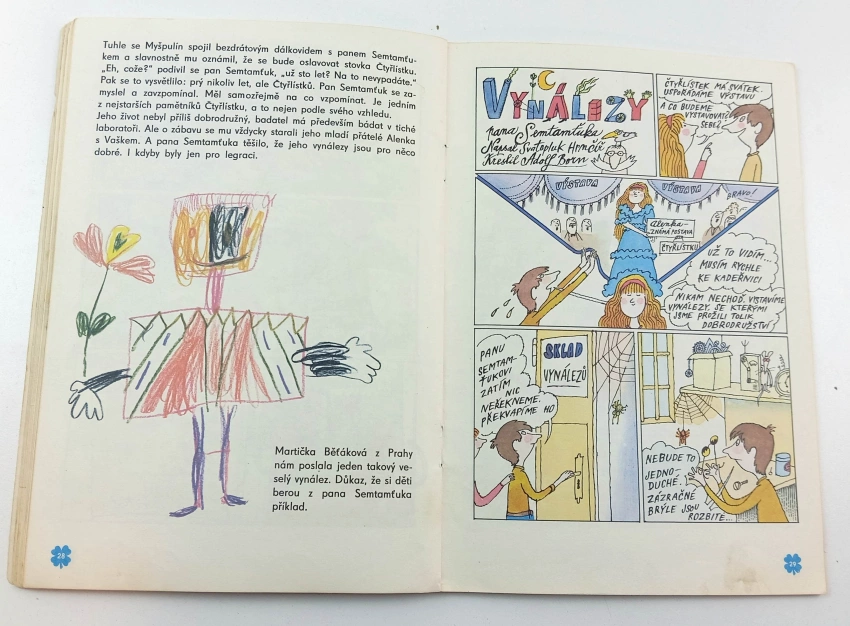 Tuhle se Myšpulín spojil bezdrátovým dálkovidem s panem Semtamťu-
kem a slavnostně mu oznámil, že se bude oslavovat stovka Čtyřlístku.
„Eh, cože?“ podivil se pan Semtamťuk, „už sto let? Na to nevypadáte.“
Pak se to vysvětlilo: prý nikoliv let, ale Čtyřlístků. Pan Semtamťuk se za-
myslel a zavzpomínal. Měl samozřejmě na co vzpomínat. Je jedním
z nejstarších pamětníků Čtyřlístku, a to nejen podle svého vzhledu.
Jeho život nebyl příliš dobrodružný, badatel má především bádat v tiché
laboratoři. Ale o zábavu se mu vždycky starali jeho mladí přátelé Alenka
s Vaškem. A pana Semtamťuka těšilo, že jeho vynálezy jsou pro něco
dobré. I kdyby byly jen pro legraci.
Martička Běťáková z Prahy
nám poslala jeden takový ve-
selý vynález. Důkaz, že si děti
berou z pana Semtamťuka
příklad.
28
VYNÁLEZY
pana Semtamťuka
Napsal Svatopluk Hrnčíř
Kreslil Adolf Born
ČTYŘLÍSTEK MÁ SVÁTEK.
USPOŘÁDÁME VÝSTAVU
A CO BUDEME
VYSTAVOVAT?
SEBE?
VÝSTAVA
VÝSTAVA
BRAVO!
Alenka-
ZNÁMÁ POSTAVA
ČTYŘLÍSTKU
UŽ TO VIDÍM...
MUSÍM RYCHLE
KE KADEŘNICI
NIKAM NECHOĎ. VYSTAVÍME
VYNÁLEZY, SE KTERÝMI
JSME PROŽILI TOLIK
DOBRODRUŽSTVÍ
PANU
SEMTAM-
ŤUKOVI
ZATÍM
NIC
NEŘEKNEME.
PŘEKVAPÍME HO
SKLAD
VYNÁLEZŮ
NEBUDE TO
JEDNO-
DUCHÉ.
ZÁZRAČNÉ
BRÝLE JSOU
ROZBITÉ...
29